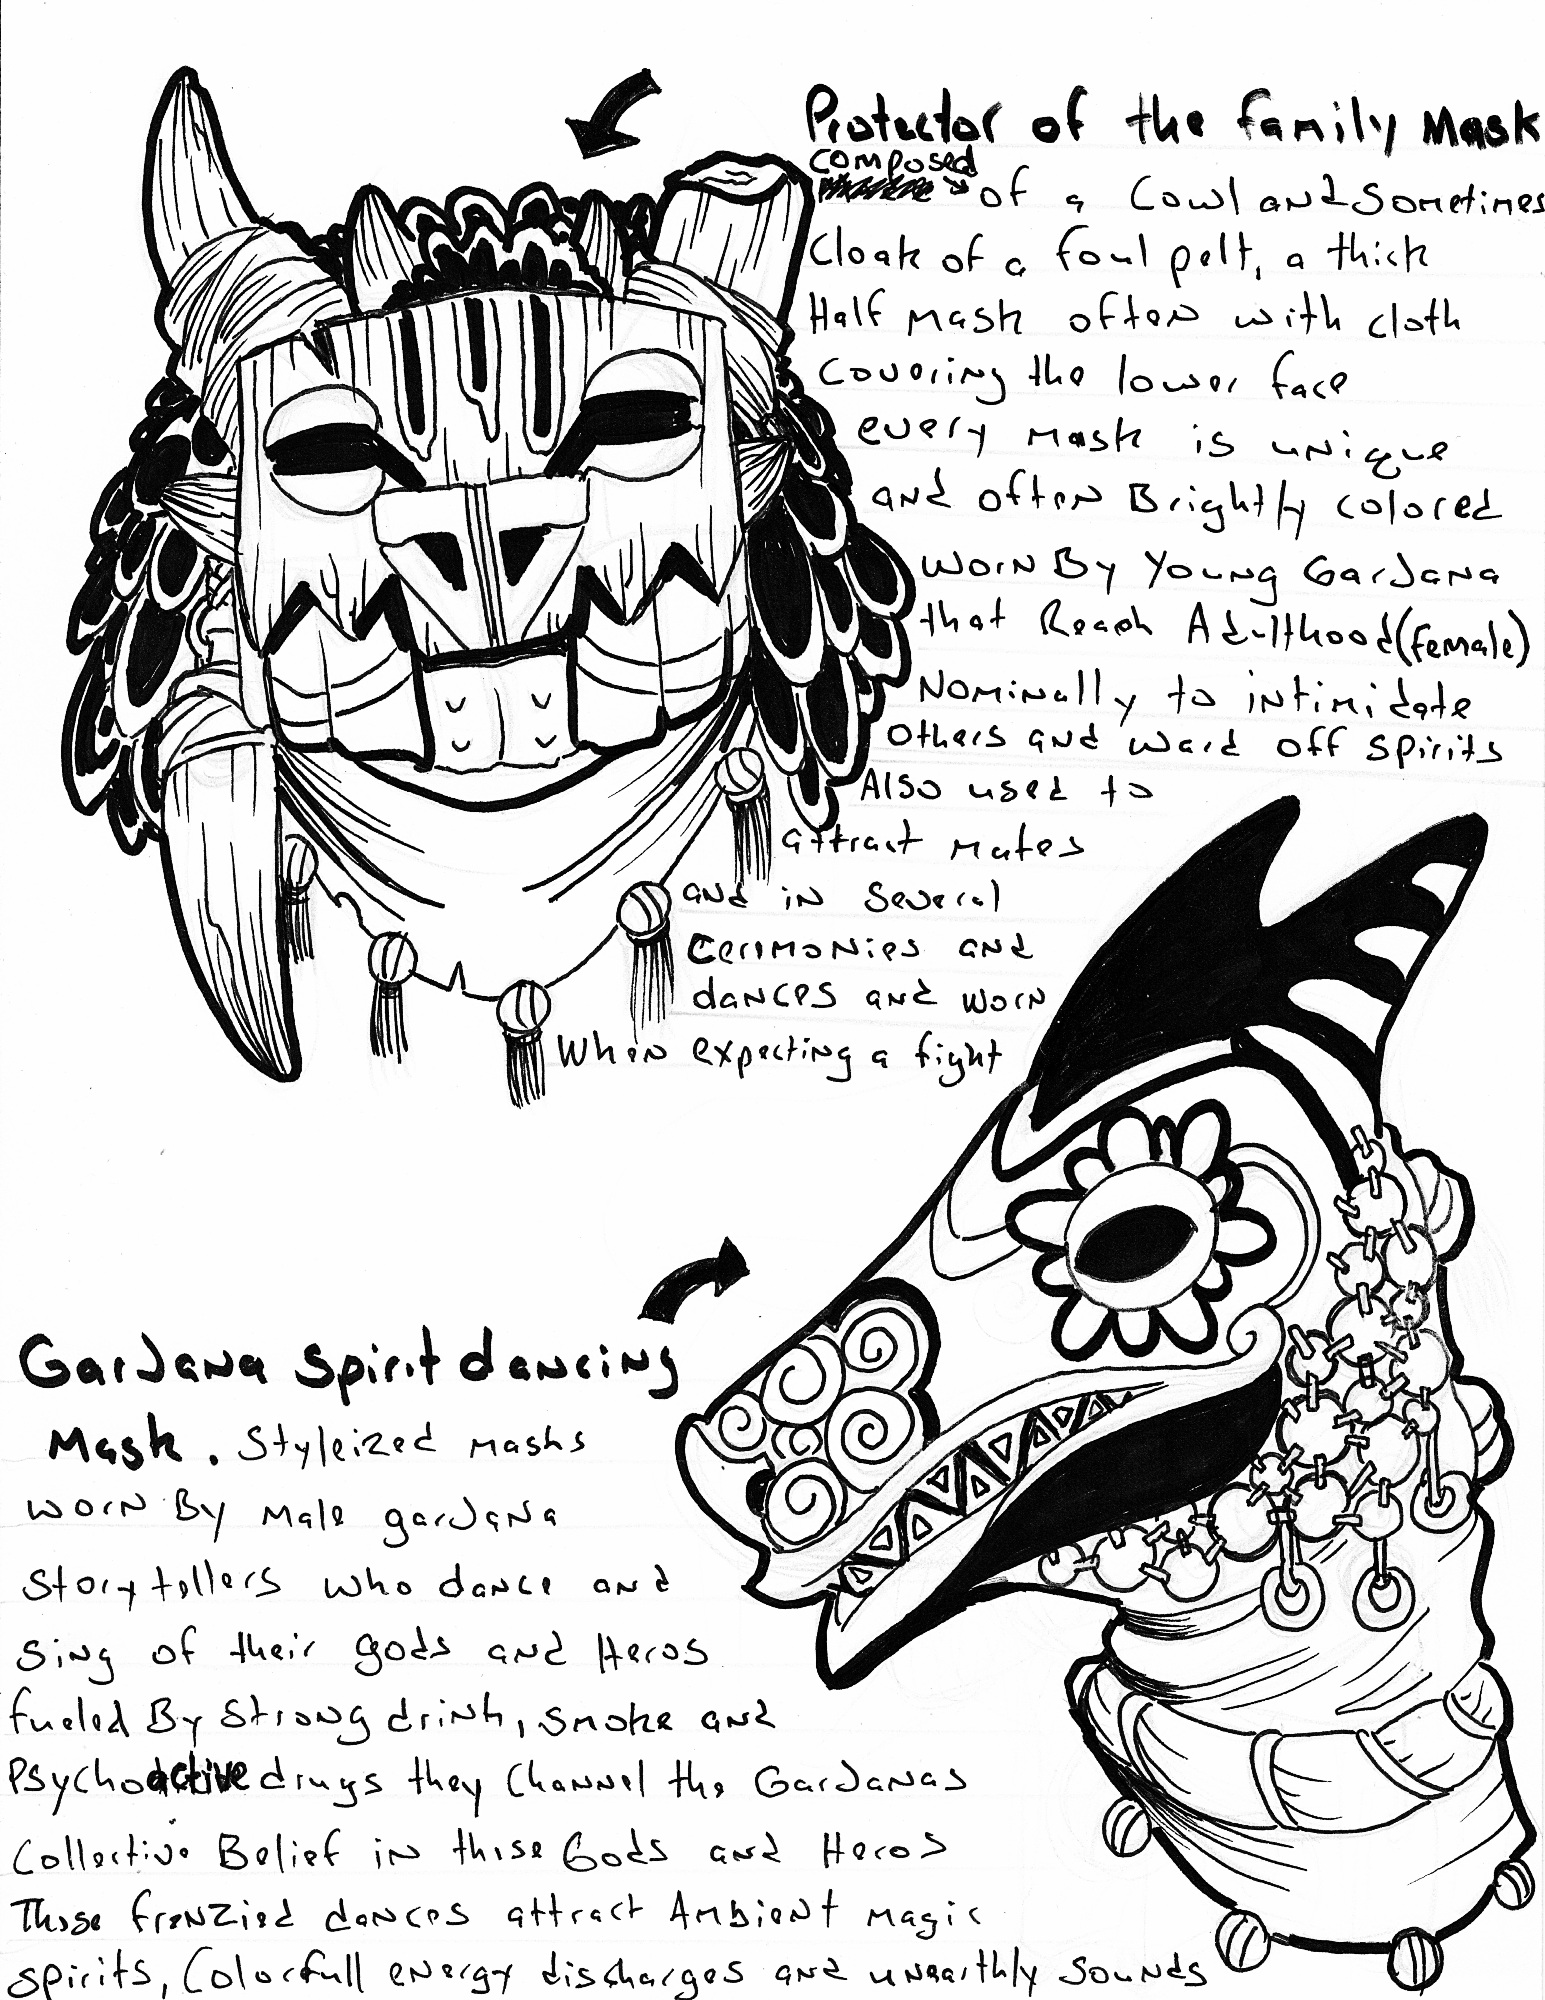 Protector of the family Mask
composed
of a Cowl and Sometimes
Cloak of a foul pelt, a thick
Half Mask often with cloth
Covering the lower face
every Mask is unique
and often Brightly colored
Worn By Young Gardana
that Reach Adulthood (female)
Nominally to intimidate
Others and ward off spirits
Also used to
attract Mates
and in Several
Cerimonies and
dances and worn
When expecting a fight
Gardana Spirit dancing
Mask. Styleized Masks
worn By Male gardana
Storytellers who dance and
Sing of their gods and Heros
fueled By Strong drink, smoke and
Psychoactive drugs they Channel the Gardanas
Collective Belief in those Gods and Heros
These frenzied dances attract Ambient Magic
Spirits, Colorfull energy discharges and unearthly Sounds